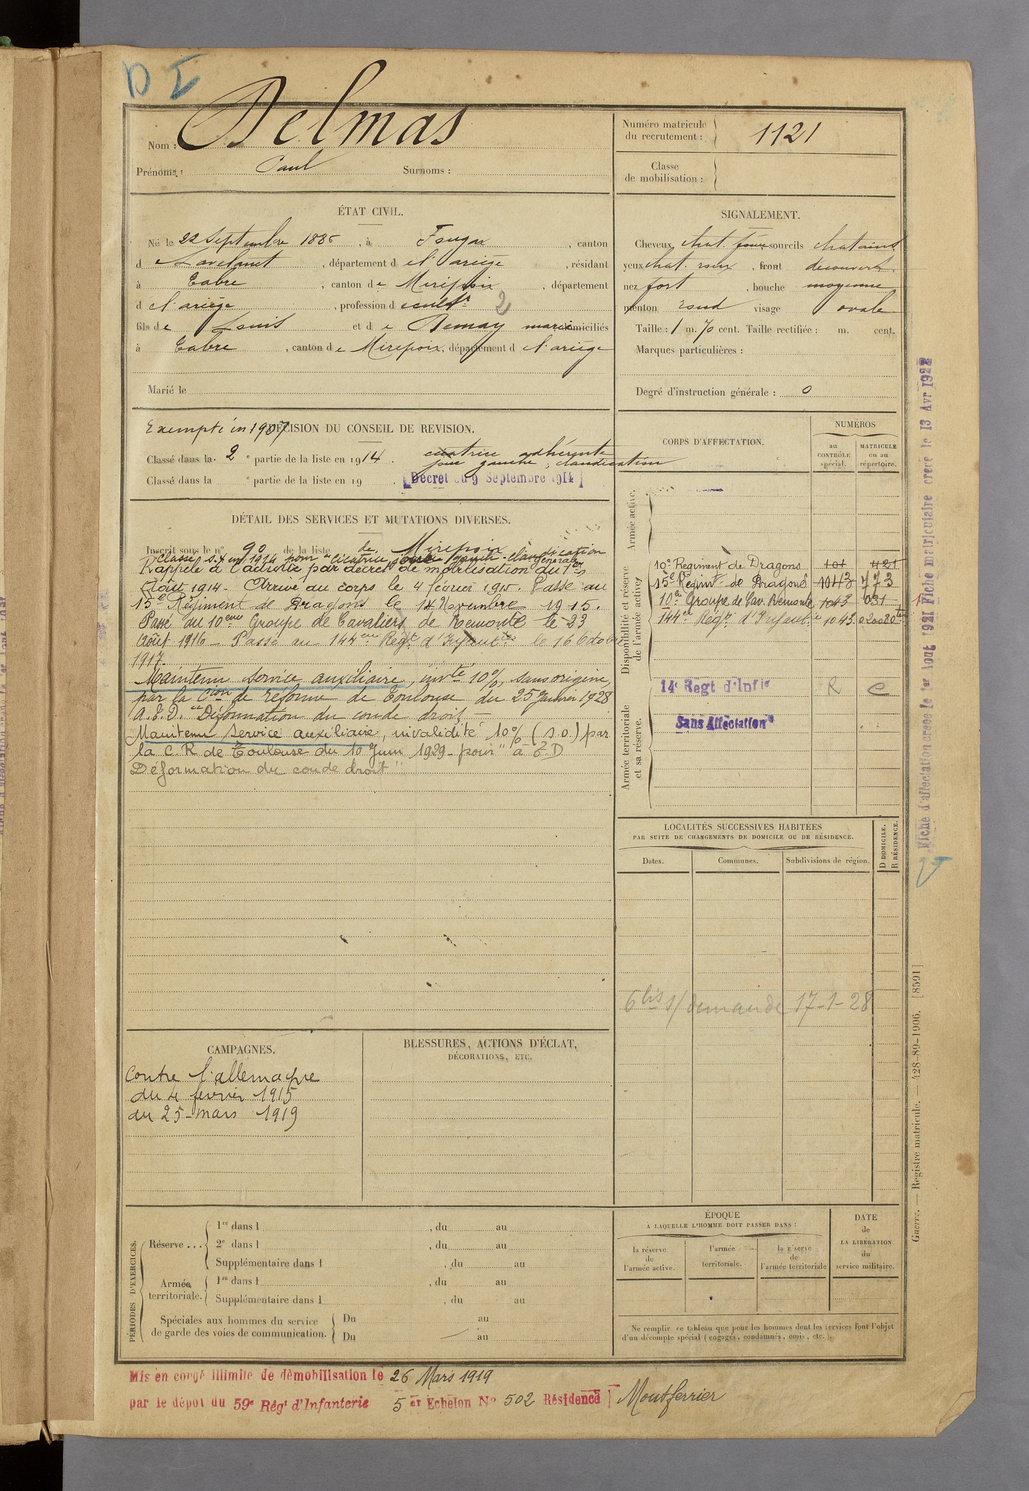 D I
Nom : Delmas
Prénoms : Paul Surnoms :
Numéro matricule
du recrutement : 1121
Classe
de mobilisation :
ÉTAT CIVIL.
Né le 22 Septembre 1886, à Fougax, canton
d Lavelanet, département d el'ariège, résidant
à Cabre, canton de Mirepoix, département
d el'ariège, profession d cultr 2
fils de Louis et de Remay mariés domiciliés
à Cabre, canton de Mirepoix, département d el'ariège
Marié le
SIGNALEMENT.
Cheveux chat. foncé sourcils chatains
yeux chat. roux, front découvert
nez fort, bouche moyenne
menton rond visage ovale
Taille : 1 m. 70 cent. Taille rectifiée : m. cent.
Marques particulières :
Degré d'instruction générale : 0
Exempté in 1907
DÉCISION DU CONSEIL DE REVISION.
Classé dans la 2e partie de la liste en 1914. cicatrice adhérente
joue gauche, claudication
Classé dans la e partie de la liste en 19 . [Décret du 9 Septembre 1914]
DÉTAIL DES SERVICES ET MUTATIONS DIVERSES.
Inscrit sous le n° 90 de la liste de Mirepoix
Classé s. a en 1914 pour "cicatrice joue gauche - claudication
Rappelé à l'activité par décret de mobilisation générale du 1er
Août 1914 - Arrivé au corps le 4 février 1915. Passé au
15e Régiment de Dragons le 14 Novembre 1915.
Passé au 10eme Groupe de Cavaliers de Remonte le 23
Août 1916 - Passé au 144eme Régt d'Infanterie le 16 Octobre
1917.
Maintenu service auxiliaire, invté 10%, sans origine,
par la Cion de réforme de Toulouse du 25 Janvier 1928
A.E.D. "Déformation du coude droit
Maintenu service auxiliaire, invalidité 10% (s.o.) par
la C. R. de Toulouse du 10 Juin 1929 - pour "à E D
Déformation du coude droit"
CORPS D'AFFECTATION.
NUMÉROS
au
CONTRÔLE
spécial.
MATRICULE
ou au
répertoire.
Armée active.
Disponibilité et réserve
de l'armée active.
10e Régiment de Dragons 101 421
15e Régimt de Dragons 1043 773
10e Groupe de Cav. Remonte 1043 031
144eme Régt d'Infanterie 1043 020020
14e Regt d'Infie R C
Armée territoriale
et sa réserve.
Sans Affectation
LOCALITÉS SUCCESSIVES HABITÉES
PAR SUITE DE CHANGEMENTS DE DOMICILE OU DE RÉSIDENCE.
Dates. Communes. Subdivisions de région. D DOMICILE. R RÉSIDENCE.
6 bis s/ demande 17-1-28
CAMPAGNES.
Contre l'allemagne
du 4 février 1915
au 25 mars 1919
BLESSURES, ACTIONS D'ÉCLAT,
DÉCORATIONS, ETC.
PÉRIODES D'EXERCICES.
Réserve ...
1re dans l , du au
2e dans l , du au
Supplémentaire dans l , du au
Armée
territoriale.
1re dans l , du au
Supplémentaire dans l , du au
Spéciales aux hommes du service
de garde des voies de communication.
Du au
Du au
ÉPOQUE
À LAQUELLE L'HOMME DOIT PASSER DANS :
la réserve
de
l'armée active.
l'armée
territoriale.
la réserve
de
l'armée territoriale
DATE
de
LA LIBÉRATION
du
service militaire.
Ne remplir ce tableau que pour les hommes dont les services font l'objet
d'un décompte spécial (engagés, condamnés, omis, etc.).
Mis en congé illimité de démobilisation le 26 Mars 1919
par le dépôt du 59e Régt d'Infanterie 5 et Echelon No 502 Résidence Montferrier
Fiche d'affectation créée le 1er Août 1921 Fiche matriculaire créée le 13 Avr 1922
Guerre. — Registre matricule. — 428-89-1906. [8591]